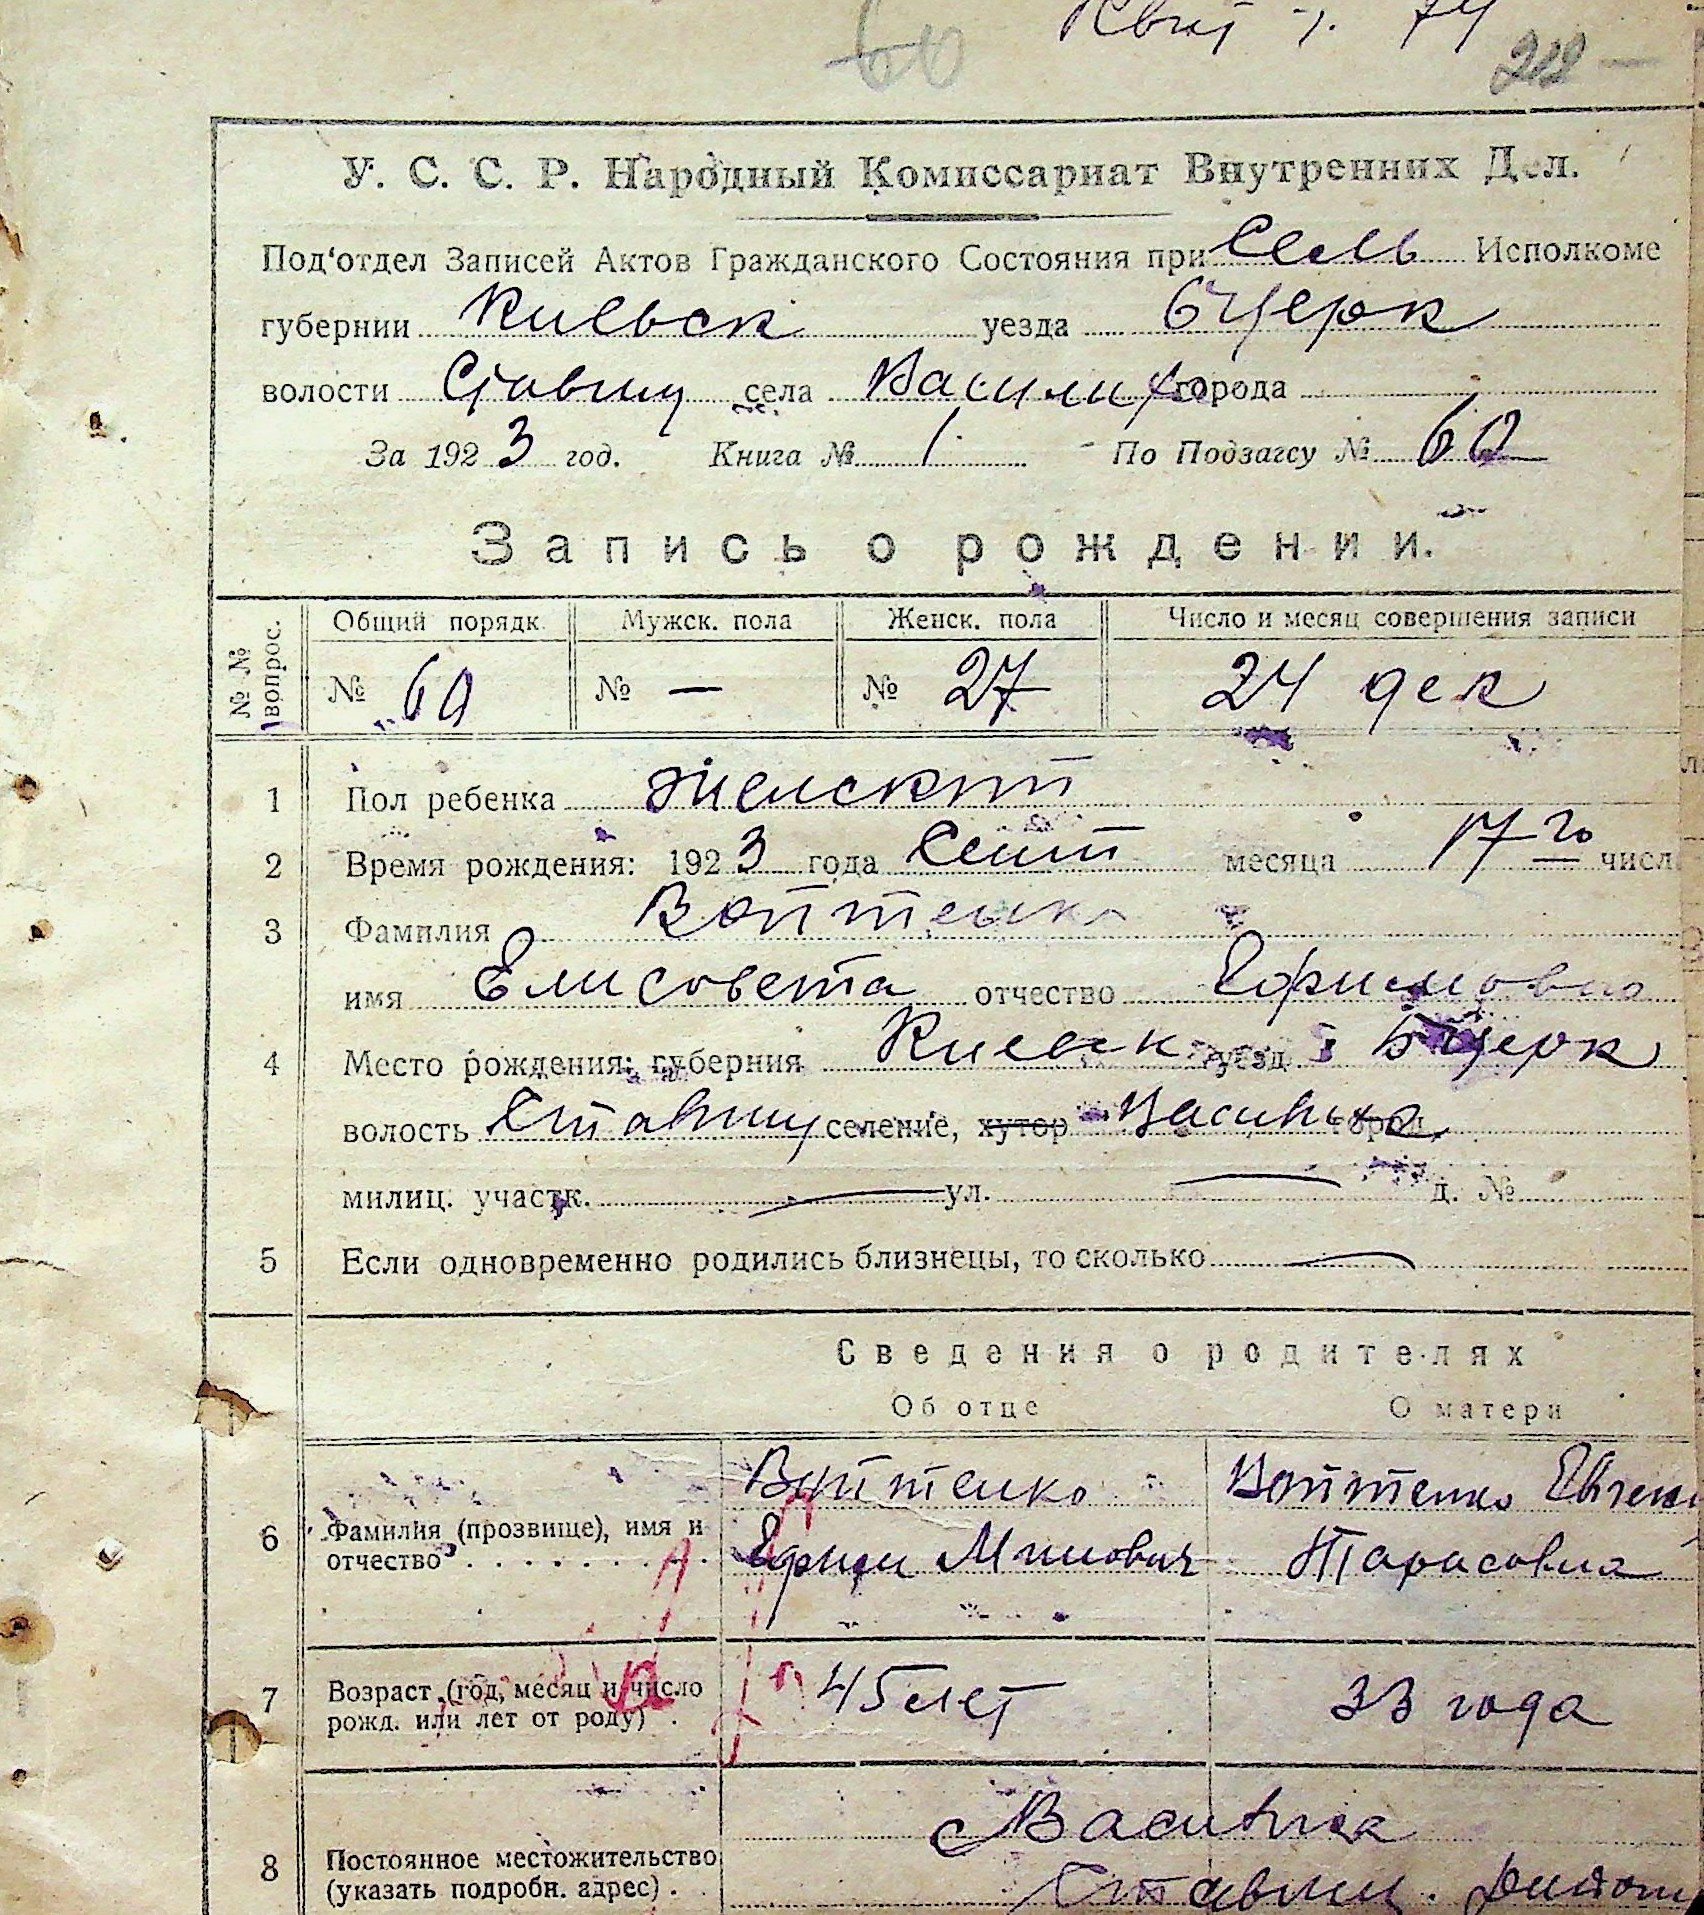 60
74
212 —
У. С. С. Р. Народный Комиссариат Внутренних Дел.
Под'отдел Записей Актов Гражданского Состояния при Сель Исполкоме
губернии Киевск уезда БЦерк
волости Ставищ села Василиха города
За 1923 год. Книга № 1. По Подзагсу № 60
Запись о рождении.
№ № вопрос. Общий порядк Мужск. пола Женск. пола Число и месяц совершения записи
№ 60 № — № 27 24 дек
1 Пол ребенка Женский
2 Время рождения: 1923 года Сент месяца 17 го числ
3 Фамилия Войтенко
имя Елисовета отчество Ефимовна
4 Место рождения: губерния Киевск уезд БЦерк
волость Ставищ селение, хутор Василиха город
милиц. участк. — ул. — д. №
5 Если одновременно родились близнецы, то сколько —
Сведения о родителях
Об отце О матери
Войтенко Войтенко Евгени
6 Фамилия (прозвище), имя и
отчество Ефим Минович Тарасовна
7 Возраст (год, месяц и число 45 лет 33 года
рожд. или лет от роду)
с Василиха
8 Постоянное местожительство
(указать подробн. адрес) Ставищ.